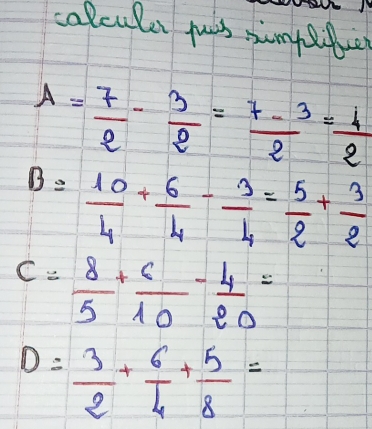 calculer puis simplifier
A = 7/2 - 3/2 = 7 - 3/2 = 4/2
B = 10/4 + 6/4 - 3/4 = 5/2 + 3/2
C = 8/5 + 6/10 - 4/20 =
D = 3/2 + 6/4 + 5/8 =